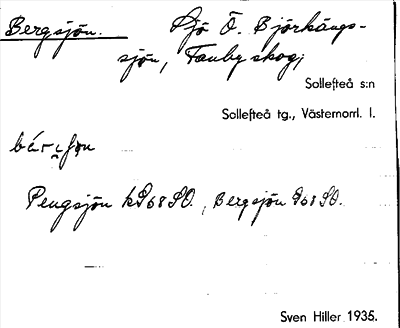 Bergsjön. Sjö Ö. Björkängs-
sjön, Tanbyskog;
Sollefteå s:n
Sollefteå tg., Västernorrl. l.
Pengsjön k968SO., Bergsjön 968SO.
Sven Hiller 1935.